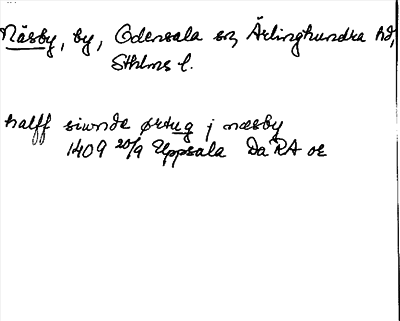 Näsby, by, Odensala sn, Ärlinghundra hd,
Sthlms l.
halff siunde ørtug j næsby
1409 20/9 Uppsala DaRA or